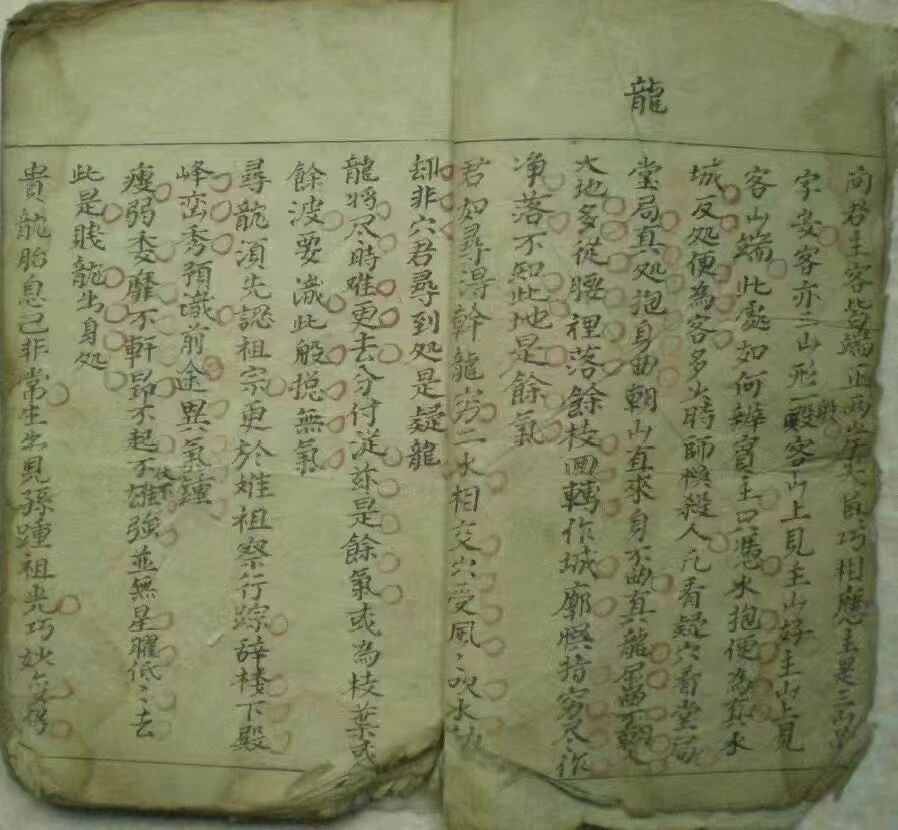 龍
向君主客皆端正兩岸尖直巧相應主是三山品
字安客亦三山形一般客山上見主山好主山上見
客山端此處如何辨賓主只憑水抱便為真水
城反处便為客多少時師悞殺人凡看疑穴看堂局
堂局真处抱身曲朝山直來身不曲真龍屈曲朝
大地多從腰裡落餘枝囬轉作城廓悞指穷尽作
净落不知此地是餘氣
君如尋淂幹龍穷二水相交穴受風〻吹水劫
却非穴君尋到处是疑龍
龍將尽時难更去分付從茲是餘氣或為枝葉或
餘波要識此般揔無氣
尋龍須先認祖宗更於雄祖察行踪辞楼下殿
峰峦秀預識前途異氣鍾
瘦弱委靡不軒昂不起不伏不雄強並無星曜低〻去
此是賎龍出身处
貴龍胎息已非常生出兒孫踵祖光巧妙